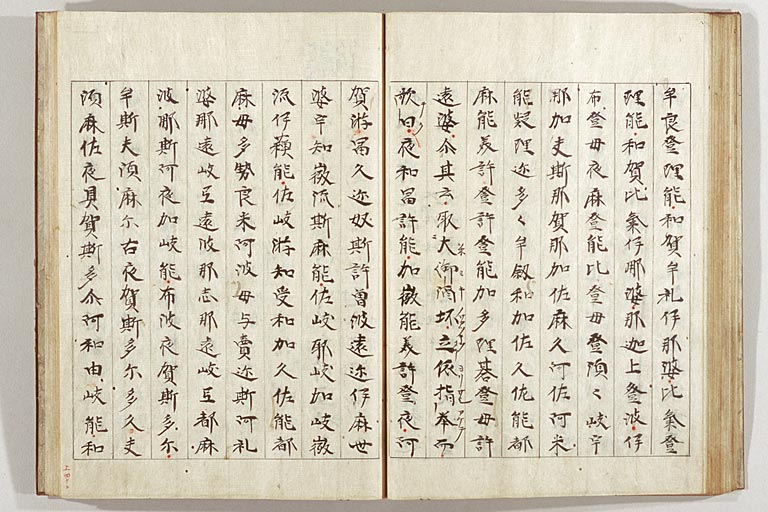 牟良登理能和賀牟礼伊那婆比氣登
理能和賀比氣伊耶婆那迦上登波伊
布登母夜麻登能比登母登須々岐宇
那加夫斯那賀那加佐麻久阿佐阿米
能疑理迩多々牟叙和加佐久佐能都
麻能美許登許登能加多理碁登母許
遠婆尒其 取大御酒坏立依指擧而
歌曰夜和冨許能加微能美許登夜阿
賀淤冨久迩奴斯許曽波遠迩伊麻世
婆宇知微流斯麻能佐岐耶岐加岐微
流伊蘓能佐岐淤知受和加久佐能都
麻母多勢良米阿波母与賣迩斯阿礼
婆那遠岐弖遠波那志那遠岐弖都麻
波那斯阿夜加岐能布波夜賀斯多尓
牟斯夫須麻尓古夜賀斯多尓多久夫
須麻佐夜具賀斯多尒阿和由岐能和